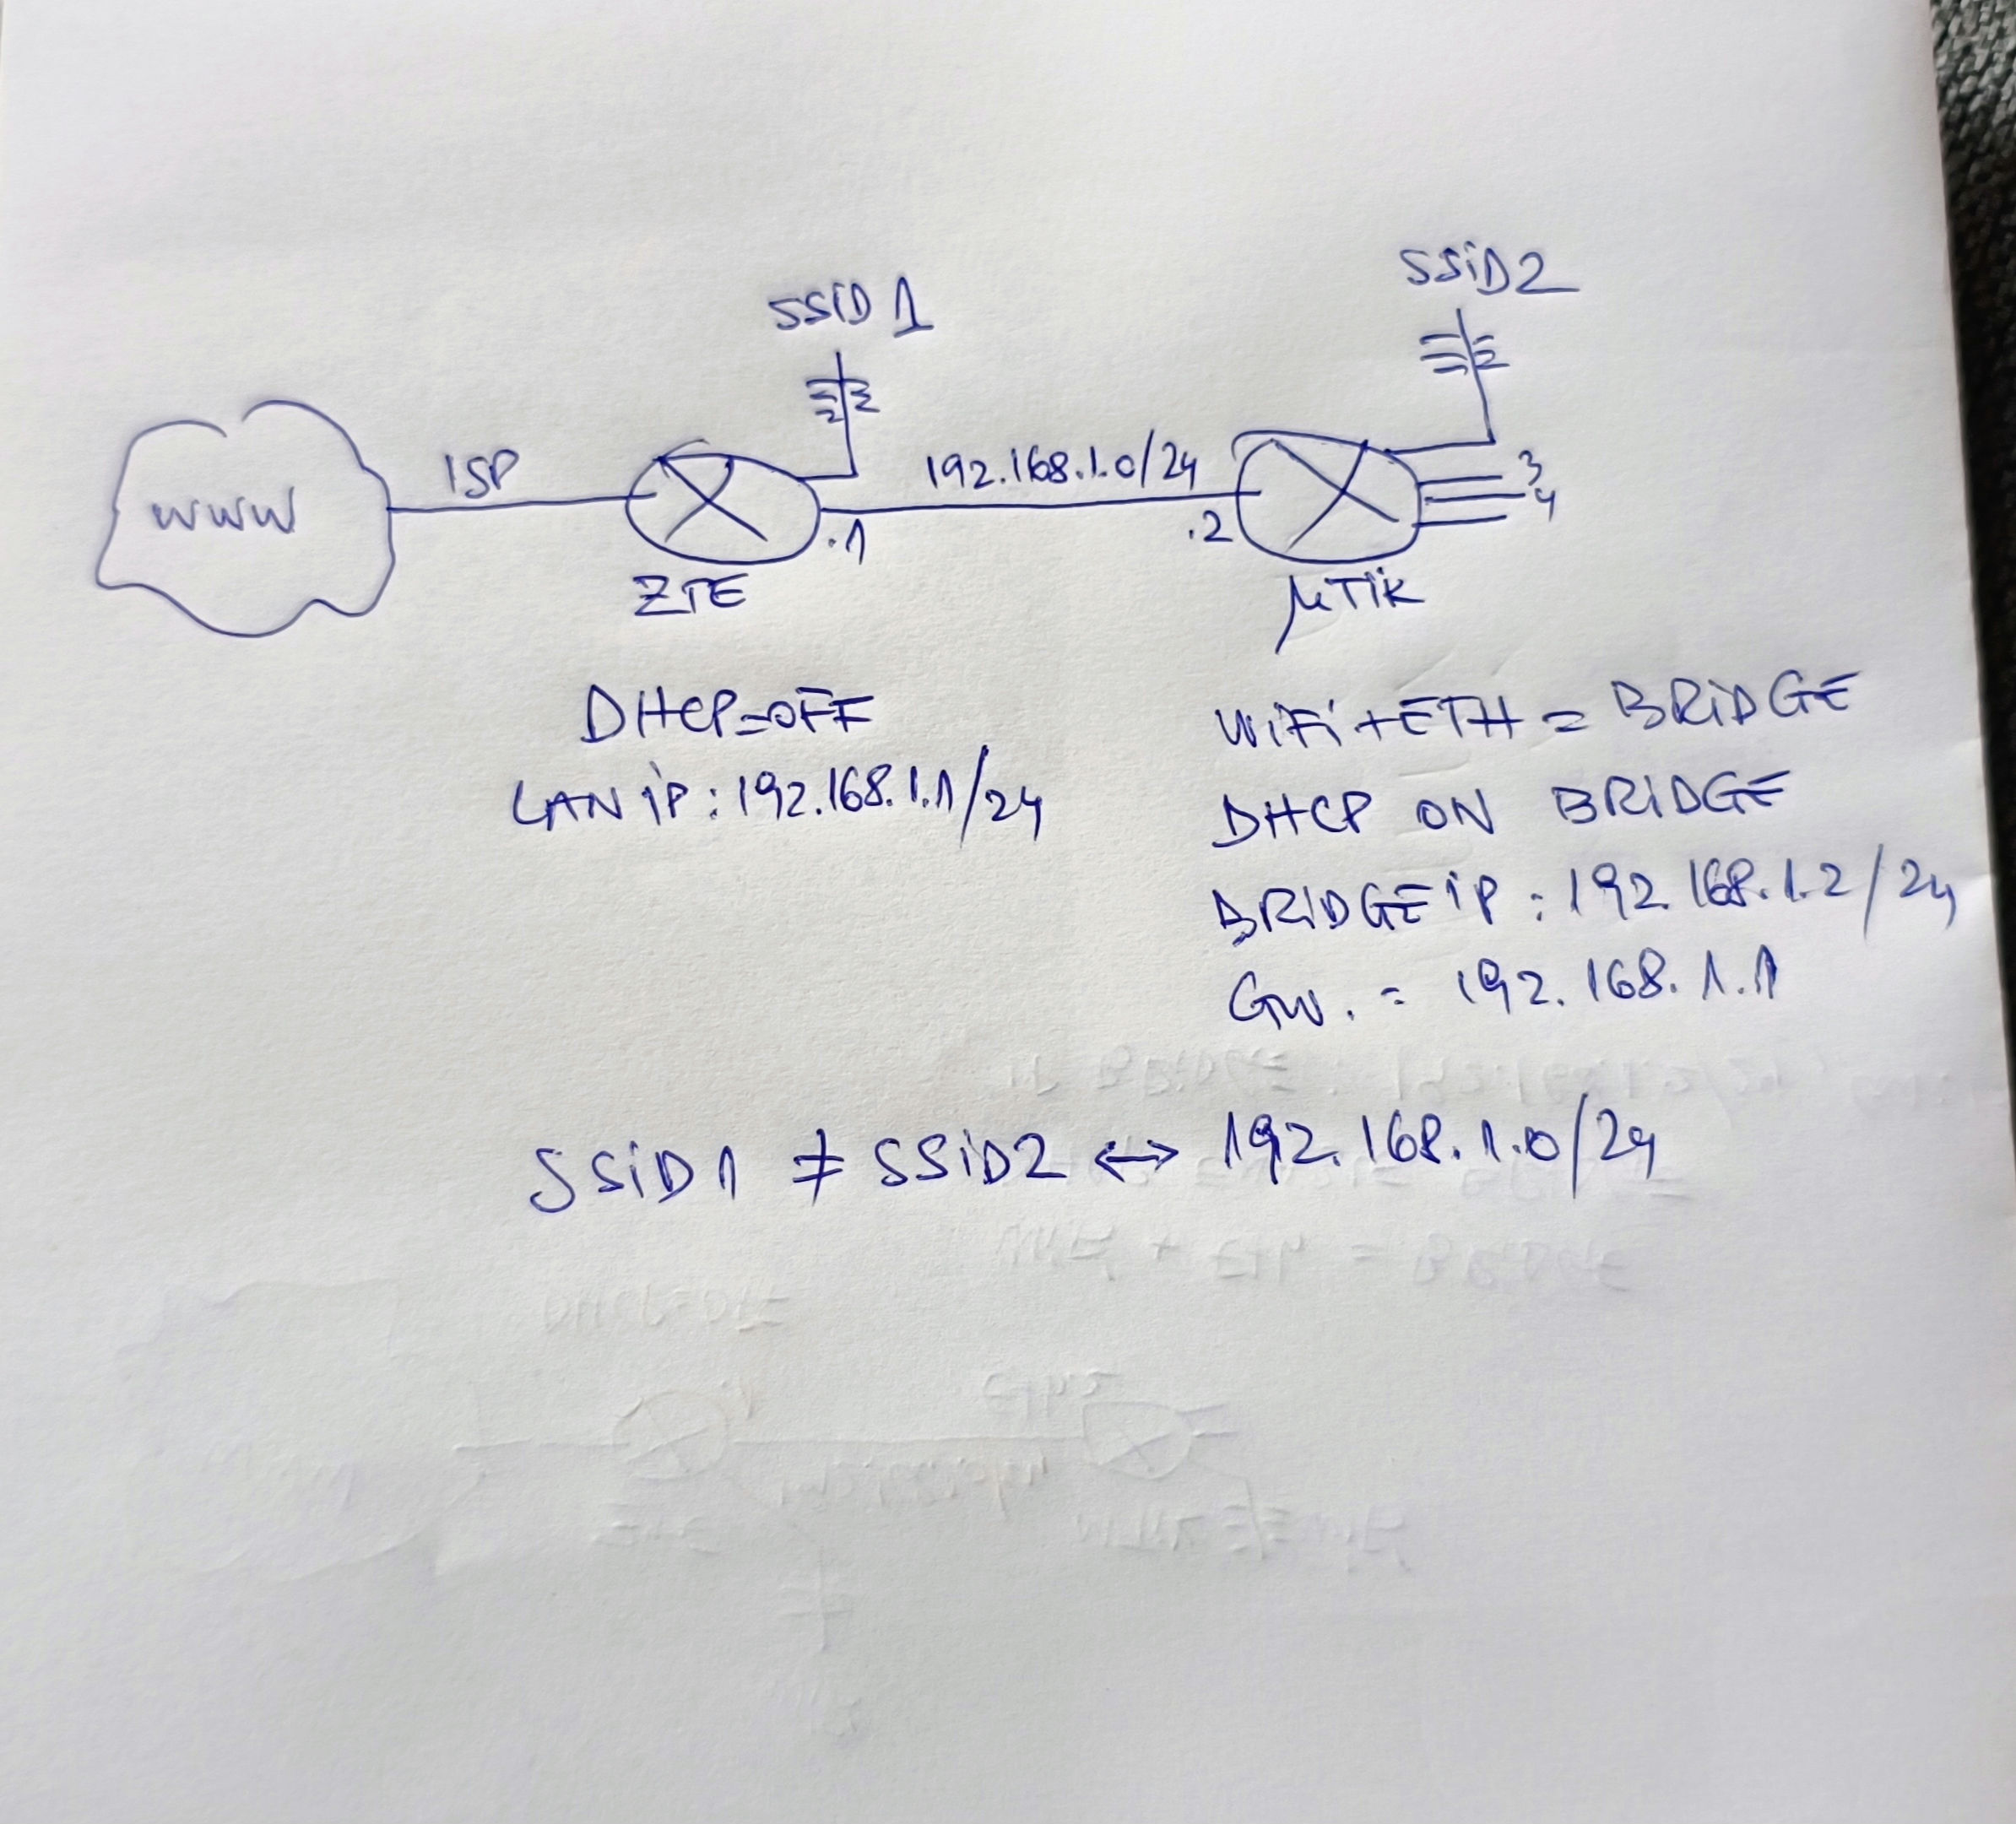 SSiD2
SSID 1
www
ISP
192.168.1.0/24
3
4
.1
.2
ZTE
μTiK
DHCP=OFF
LAN iP: 192.168.1.1/24
WiFi+ETH = BRiDGE
DHCP ON BRIDGE
BRiDGE iP: 192.168.1.2/24
GW. = 192.168.1.1
SSiD1 ≠ SSiD2 ↔ 192.168.1.0/24